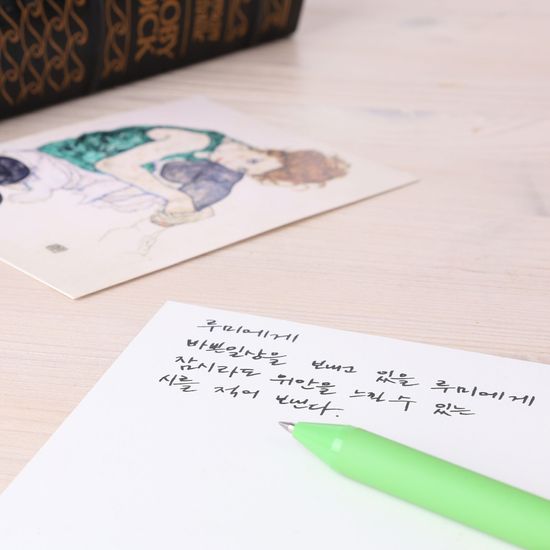 MOBY
DICK
루미에게
바쁜일상을 보내고 있을 루미에게
잠시라도 위안을 느낄 수 있는
시를 적어 보낸다.